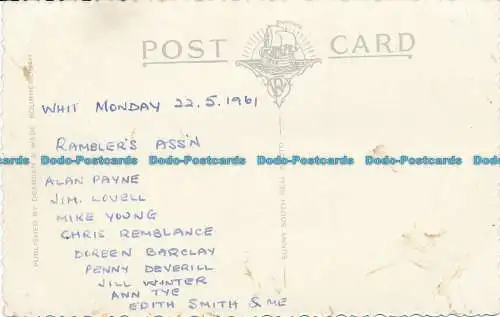 POST CARD
WHIT MONDAY 22.5.1961
RAMBLER'S ASS'N
Dodo-Postcards Dodo-Postcards Dodo-Postcards Dodo-Postcards
ALAN PAYNE
JIM. LOVELL
MIKE YOUNG
CHRIS REMBLANCE
DOREEN BARCLAY
PENNY DEVERILL
JILL WINTER
ANN TYE
EDITH SMITH & ME
Dodo-Postcards Dodo-Postcards Dodo-Postcards Dodo-Postcards
PUBLISHED BY DEARDEN & WADE BOURNEMOUTH
SUNNY SOUTH REAL PHOTO